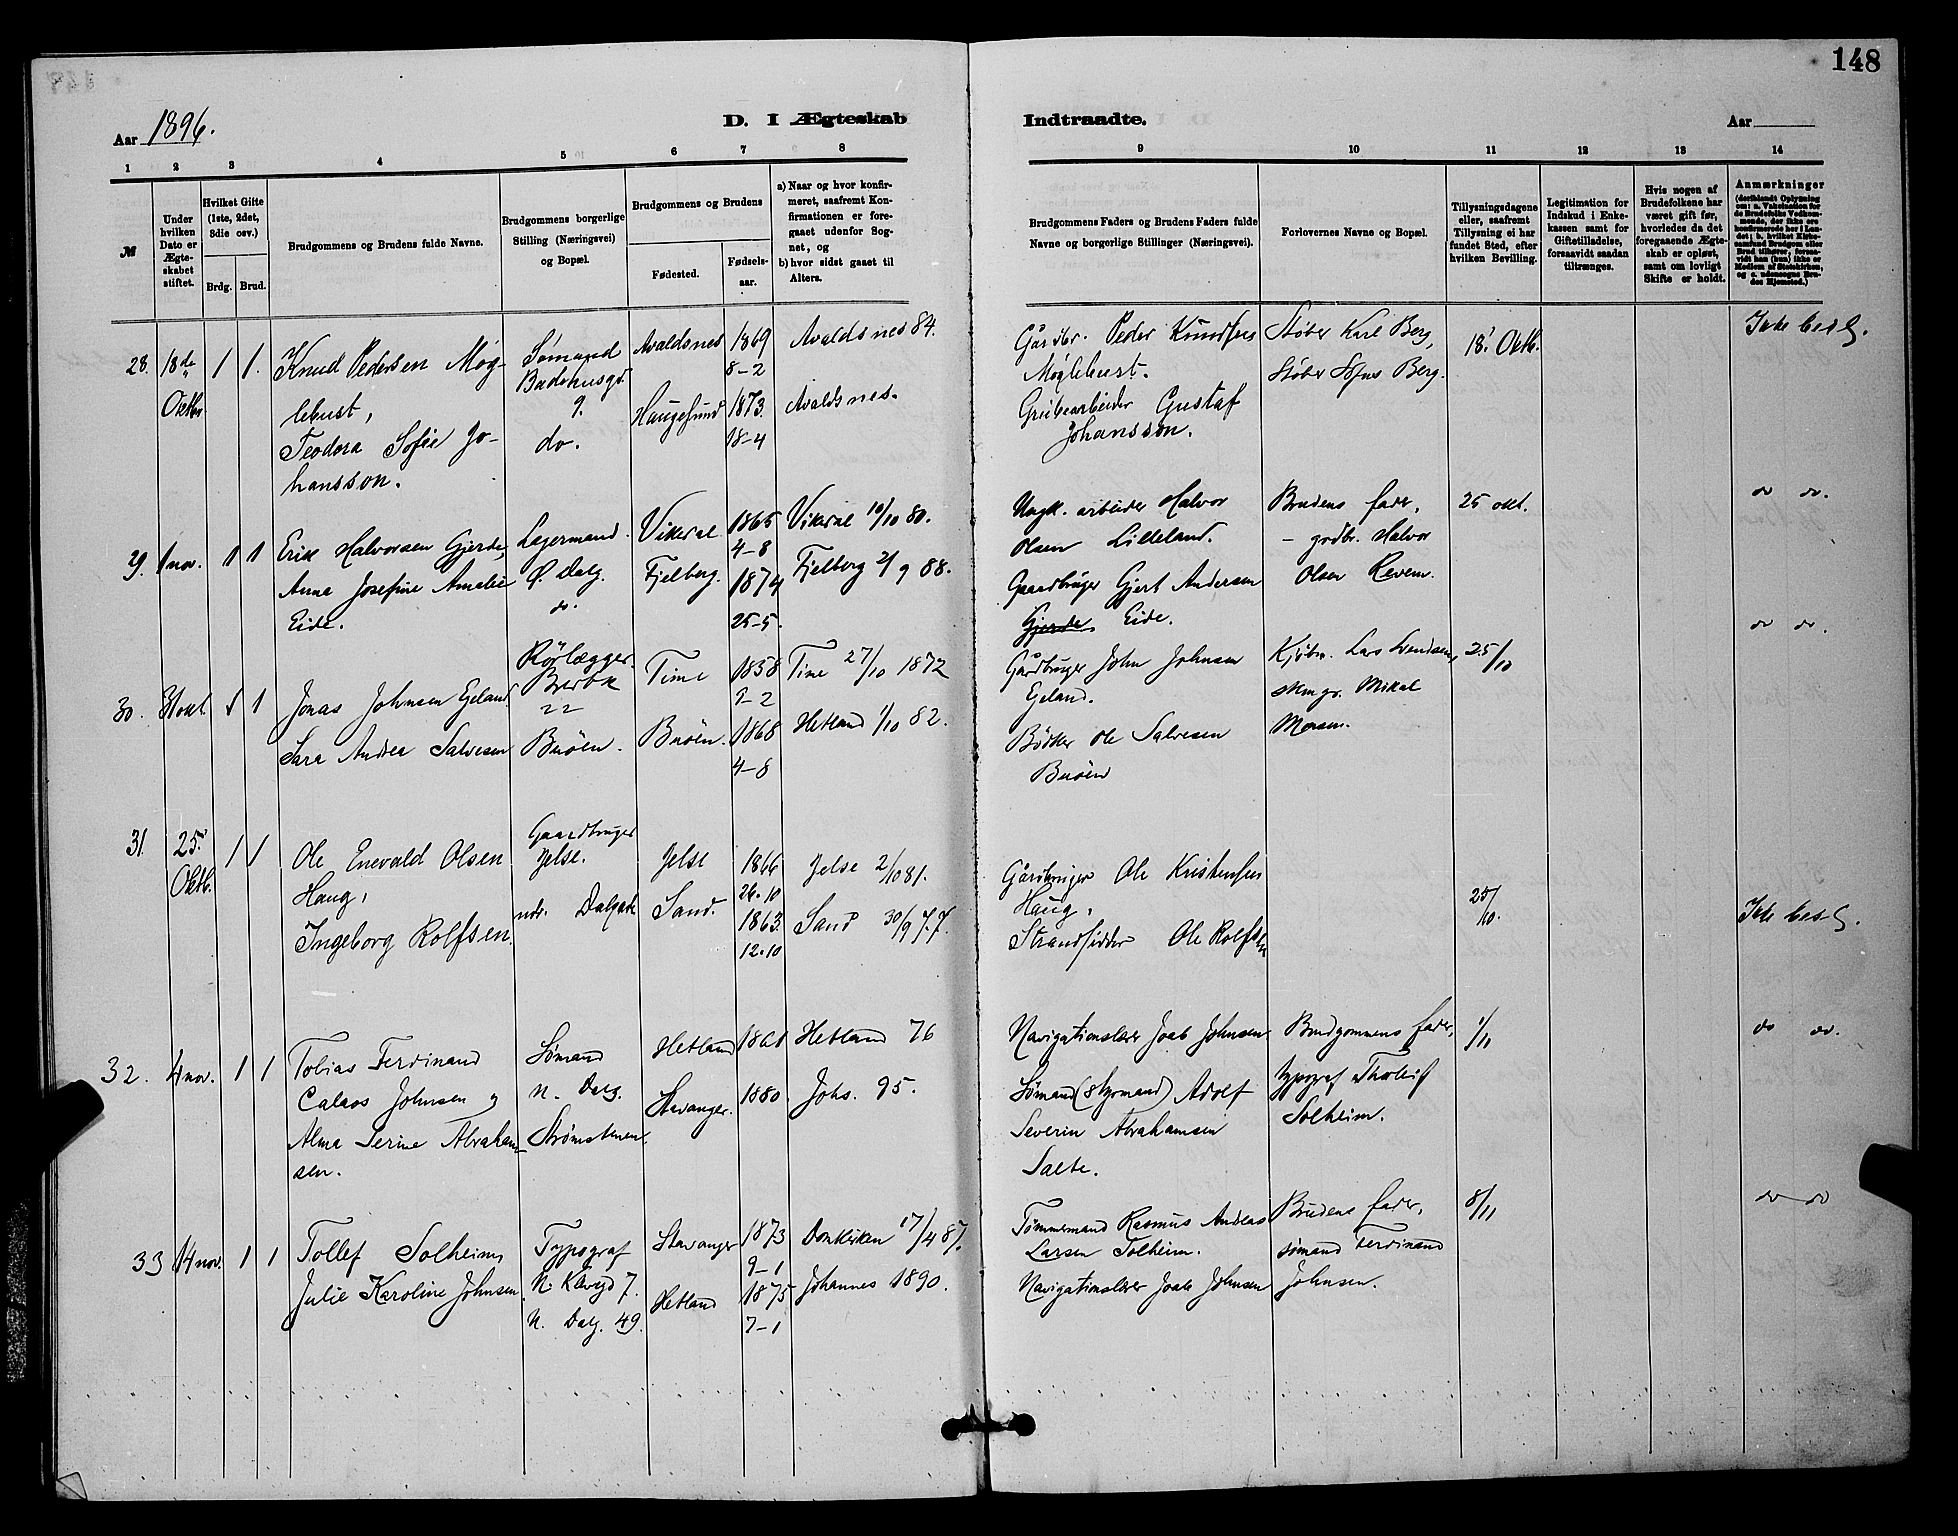 148
Aar 1896.
D. I Ægteskab
Indtraadte.
Aar
1 2 3 4 5 6 7 8
9 10 11 12 13 14
№
Under hvilken Dato er Ægteskabet stiftet.
Hvilket Gifte (1ste, 2det, 3die osv.)
Brdg. Brud.
Brudgommens og Brudens fulde Navne.
Brudgommens borgerlige Stilling (Næringsvei) og Bopæl.
Brudgommens og Brudens
Fødested.
Fødselsaar.
a) Naar og hvor konfirmeret, saafremt Konfirmationen er foregaaet udenfor Sognet, og
b) hvor sidst gaaet til Alters.
Brudgommens Faders og Brudens Faders fulde Navne og borgerlige Stillinger (Næringsvei).
Forlovernes Navne og Bopæl.
Tillysningsdagene eller, saafremt Tillysning ei har fundet Sted, efter hvilken Bevilling.
Legitimation for Indskud i Enkekassen samt for Giftetilladelse, forsaavidt saadan tiltrænges.
Hvis nogen af Brudefolkene har været gift før, hvorledes da det foregaaende Ægteskab er opløst, samt om lovligt Skifte er holdt.
Anmærkninger
28. 18de Oktbr 1 1.
Knud Pedersen Møg-
lebust,
Teodora Sofie Jo-
hansson.
Sømand
Badehusgd.
9.
do.
Avaldsnes 1869
8-2
Haugesund 1873.
18-4
Avaldsnes 84.
Avaldsnes.
Gårdbr. Peder Knudsen
Møglebust.
Grubearbeider Gustaf
Johansson.
Støber Karl Berg,
Støber Sofus Berg.
18. Oktb.
29. 1 nov. 1 1
Erik Halvorsen Gjerde,
Anna Josefine Amalie
Eide.
Lagermand.
Ø. Dalg.
do.
Vikeral 1865
4-8
Fjelberg. 1874
25-5.
Vikeral 10/10 80.
Fjelberg 2/9 88.
arbeider Halvor
Olsen Lilleland.
Gaardbruger Gjert Andersen
Gjerde. Eide.
Brudens fader,
– grdbr. Halvor
Olsen Revem.
25 okt.
do do.
30. 31 okt. 1 1
Jonas Johnsen Egeland
Sara Andrea Salvesen
Rørlægger.
22
Buøen.
Time 1858
2-2
Buøen. 1868
4-8
Time 27/10 1872
Hetland 1/10 82.
Gårdbruger John Johnsen
Egeland.
Bødker Ole Salvesen
Buøen
Kjøbm. Lars Svendsen,
Mikal
Monsen.
25/10
do do.
31. 25. Oktb. 1 1
Ole Enevald Olsen
Haug,
Ingeborg Rolfsen.
Gaardbruger
Jelse.
ndr. Dalgate
Jelse 1866
26.10
Sand. 1863.
12.10
Jelse 2/10 81.
Sand 30/9 77.
Gårdbruger Ole Kristensen
Haug,
Strandsidder Ole Rolfsen
25/10.
32. 4 nov. 1 1
Tobias Ferdinand
Calaos Johnsen og
Alma Serine Abraham-
sen.
Sømand
N. Dalg.
Strømstenen.
Hetland
Stavanger. 1880.
Hetland 76
Johs. 95.
Navigationslærer Joab Johnsen
Sømand (Styrmand) Adolf
Severin Abrahamsen
Salte.
Brudgommens fader,
typograf Tholeif
Solheim.
1/11
do do.
33 14 nov. 1 1
Tollef Solheim,
Julie Karoline Johnsen
Typograf
N. Klevgd 7.
N. Dalg. 49.
Stavanger 1873
9-1
Hetland 1875
7-1
Domkirken 17/4 87.
Johannes 1890.
Tømmermand Rasmus Andreas
Larsen Solheim.
Navigationslærer Joab Johnsen
Brudens fader,
sømand Ferdinand
Johnsen.
8/11
do do